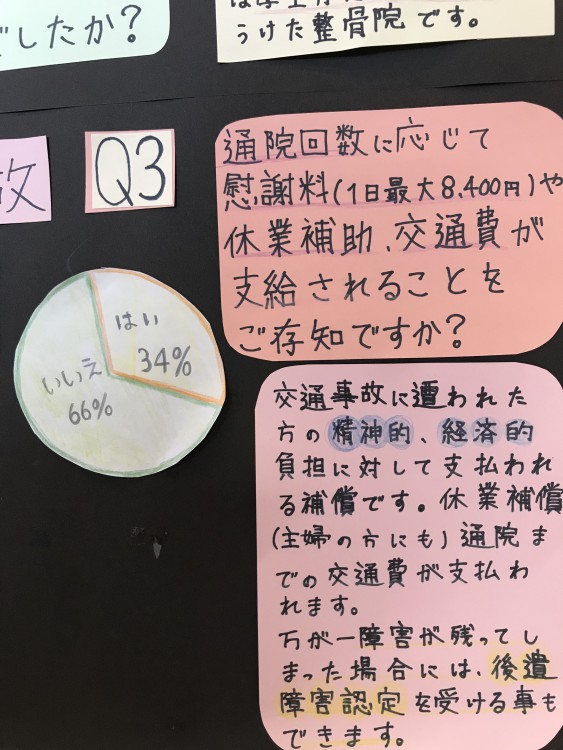 でしたか?
うけた整骨院です。
故
Q3
通院回数に応じて
慰謝料(1日最大8,400円)や
休業補助、交通費が
支給されることを
ご存知ですか?
はい
34%
いいえ
66%
交通事故に遭われた
方の精神的、経済的
負担に対して支払われ
る補償です。休業補償
(主婦の方にも)通院ま
での交通費が支払わ
れます。
万が一障害が残ってし
まった場合には、後遺
障害認定を受ける事も
できます。